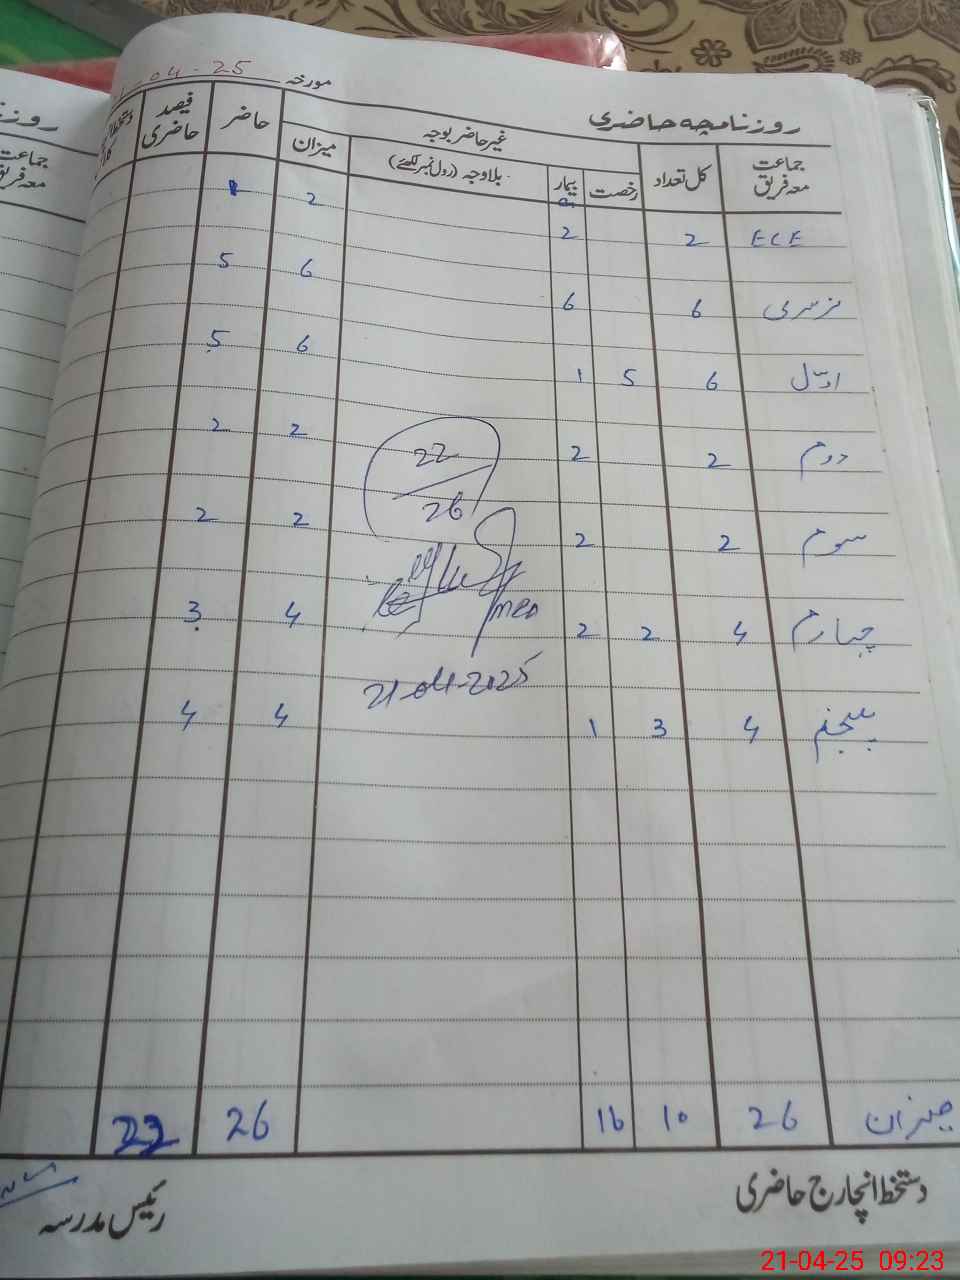 روزنامچہ حاضری مورخہ 04-25
جماعت معہ فریق کل تعداد غیر حاضر بوجہ حاضر فیصد حاضری
رخصت بیمار بلاوجہ (رول نمبر لکھئے) میزان
ECE 2 2 2
نرسری 6 6 6 5
اول 6 5 1 6 5
دوم 2 2 2 2
سوم 2 2 2 2
چہارم 4 2 2 4 3
پنجم 4 3 1 4 4
22
26
MEO
21-04-2025
میزان 26 10 16 26 22
دستخط انچارج حاضری رئیس مدرسہ
21-04-25 09:23